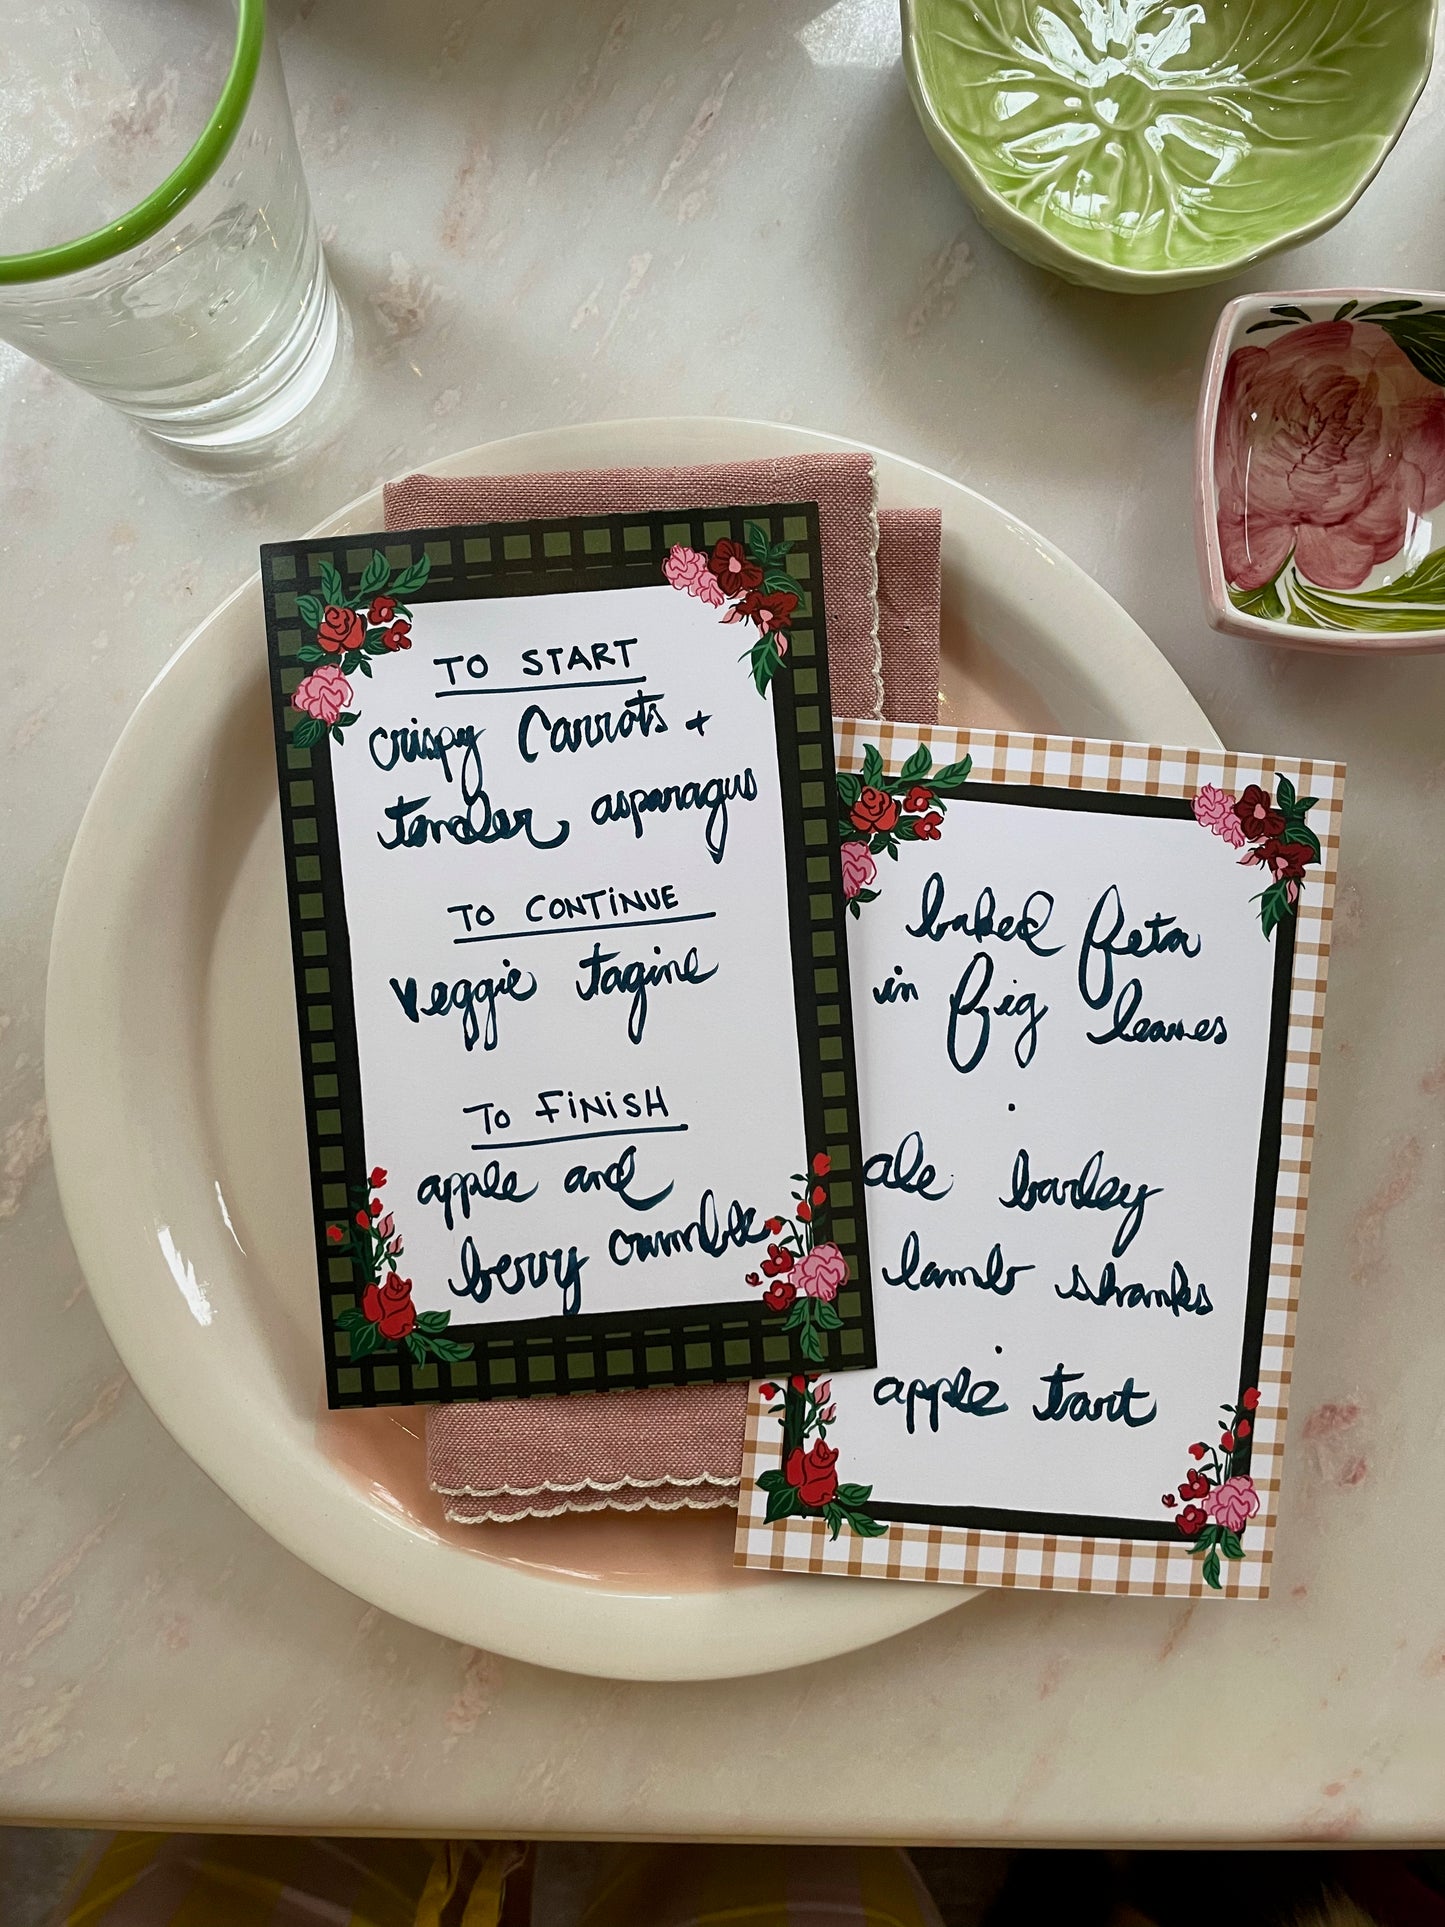 TO START
crispy Carrots +
tender asparagus
TO CONTINUE
veggie tagine
TO FINISH
apple and
berry crumble
baked feta
in fig leaves
.
ale barley
lamb shanks
.
apple tart